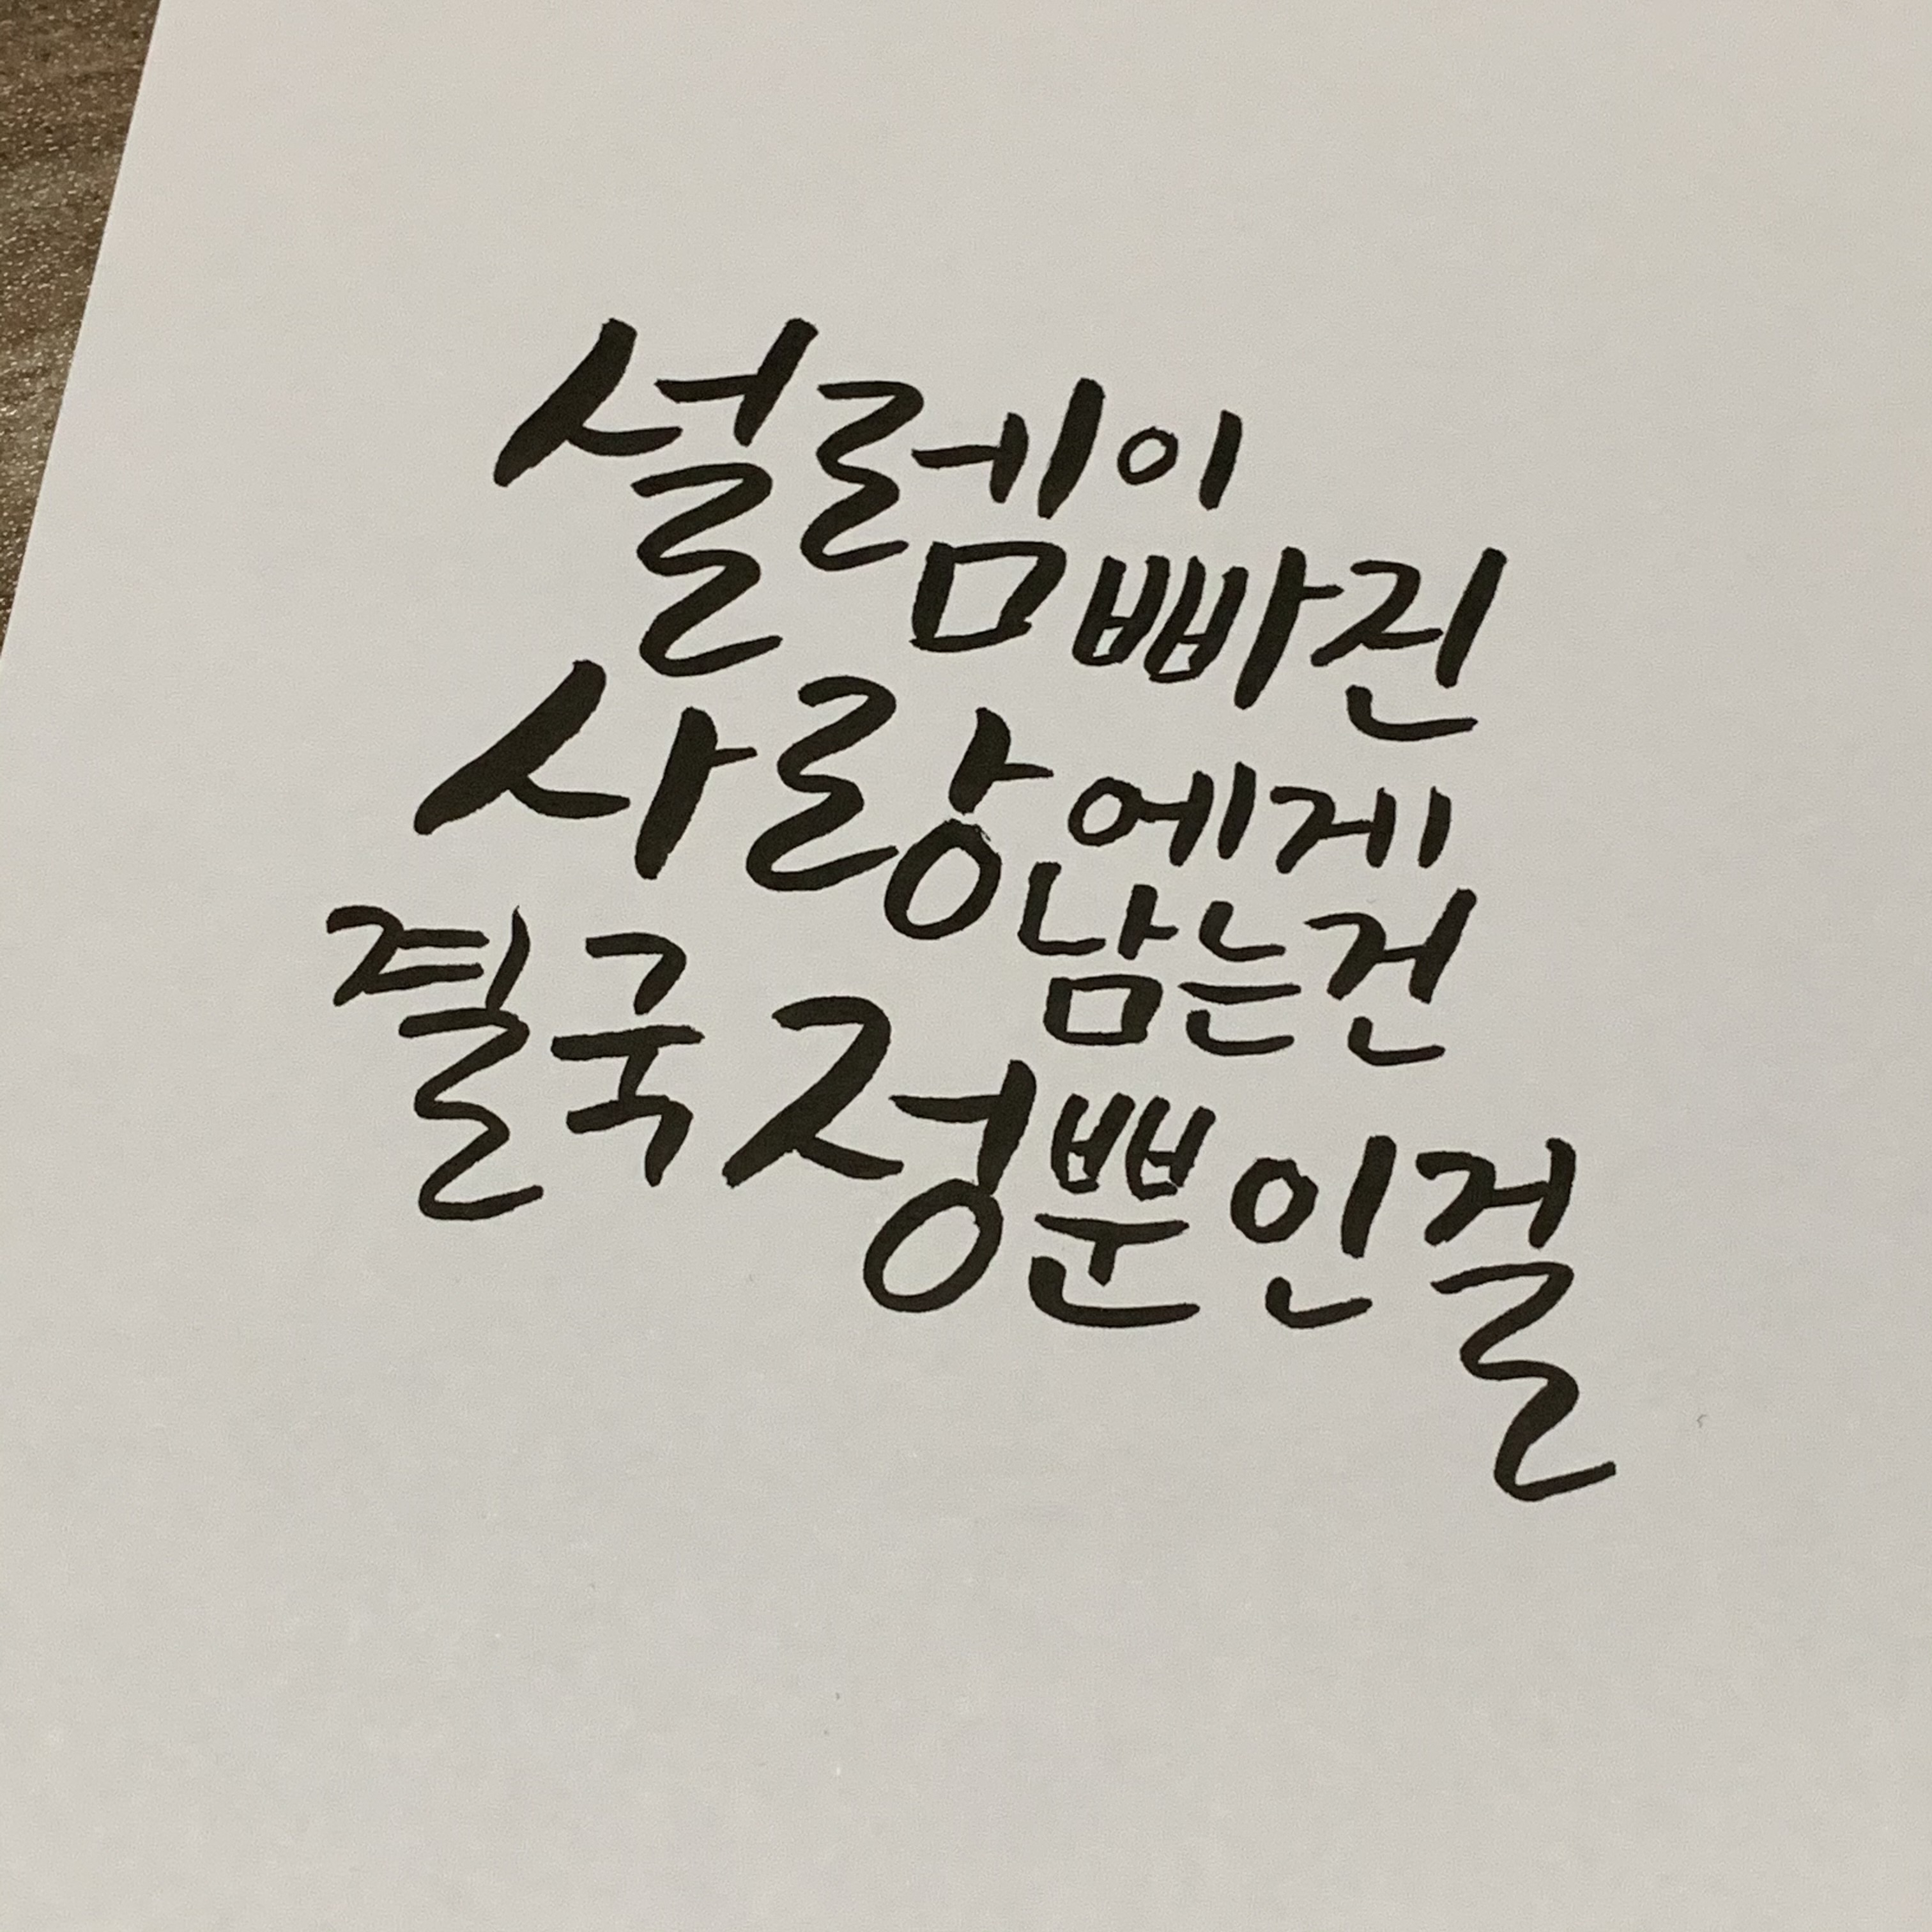 설렘이 빠진
사랑에게 남는건
결국 정뿐인걸